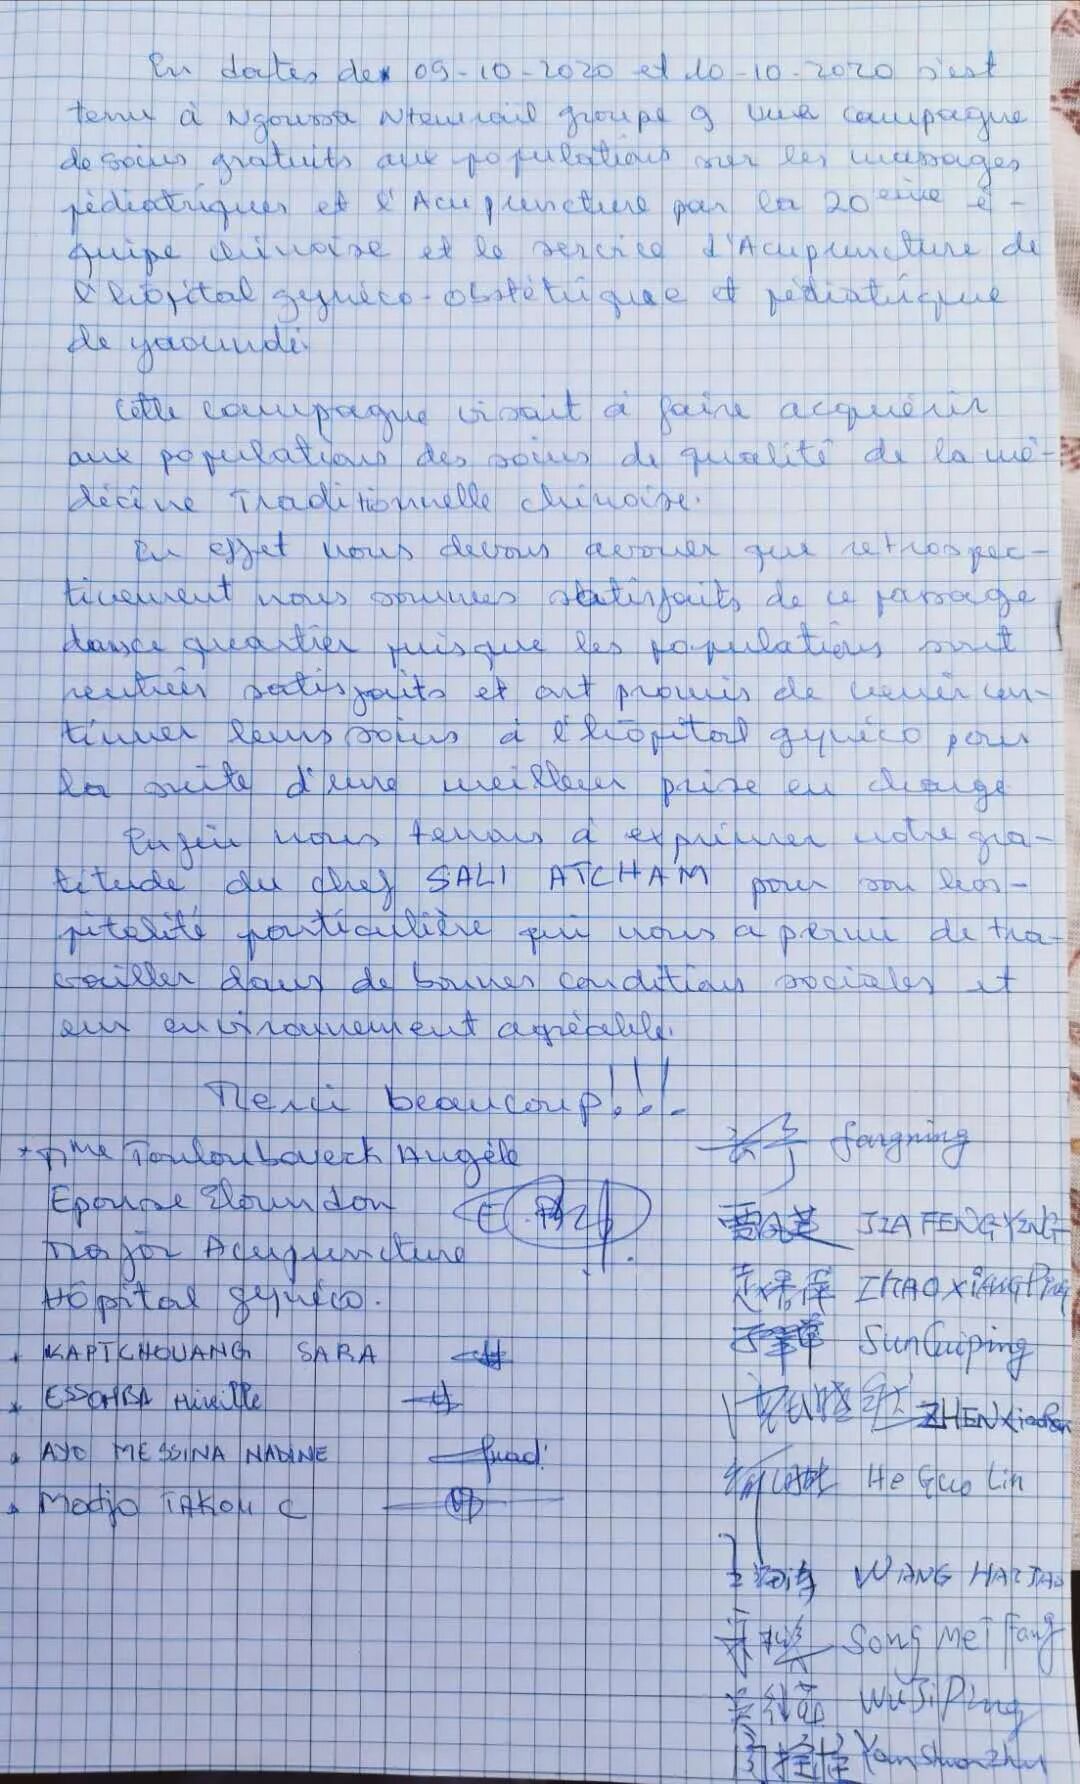 En dates de 09-10-2020 et 10-10-2020 s'est
tenu à Ngoussa Ntemrail groupe 9 une campagne
de soins gratuits aux populations sur les massages
pédiatriques et l'Acupuncture par la 20eme é-
quipe chinoise et le service d'Acupuncture de
l'hôpital gynéco-obstétrique et pédiatrique
de yaoundé.
Cette campagne visait à faire acquérir
aux populations des soins de qualité de la mé-
décine Traditionnelle chinoise.
En effet nous devons avouer que retrospec-
tivement nous sommes satisfaits de ce passage
dans ce quartier puisque les populations sont
rentrées satisfaits et ont promis de venir con-
tinuer leurs soins à l'hôpital gynéco pour
la suite d'une meilleur prise en charge
Enfin nous tenons à exprimer notre gra-
titude du chef SALI ATCHAM pour son hos-
pitalité particulière qui nous a permi de tra-
vailler dans de bonnes conditions sociales et
un environnement agréable.
Merci beaucoup!!!
Mme Angèle
fangning
Epouse Eloundou
Major Acupuncture
JIA FENGYING
Hôpital gynéco.
ZHAO XiangPing
KAPTCHOUANG SARA
SunGuiping
ESSOMBA Mireille
ZHEN
AYO MESSINA NADINE
He Guo Lin
Modjo TAKOU C
WANG HAITAO
Song Mei Fang
Wu Ji Ping
Yan Shun Zhu